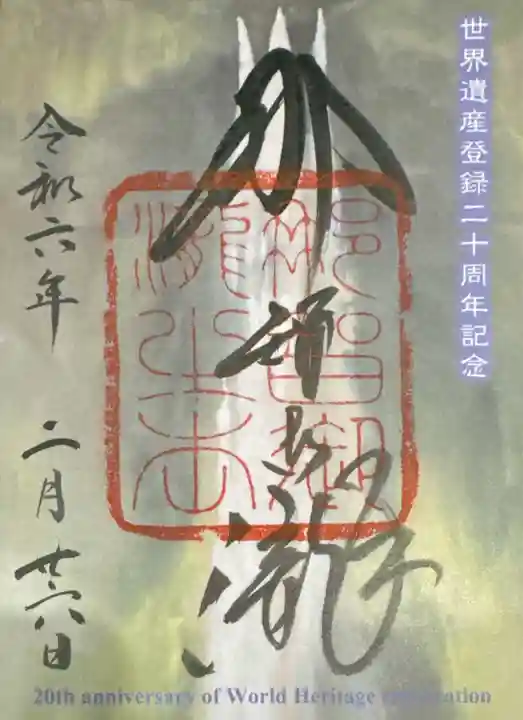 世界遺産登録二十周年記念
那智御瀧
令和六年 二月 廿六日
20th anniversary of World Heritage registration